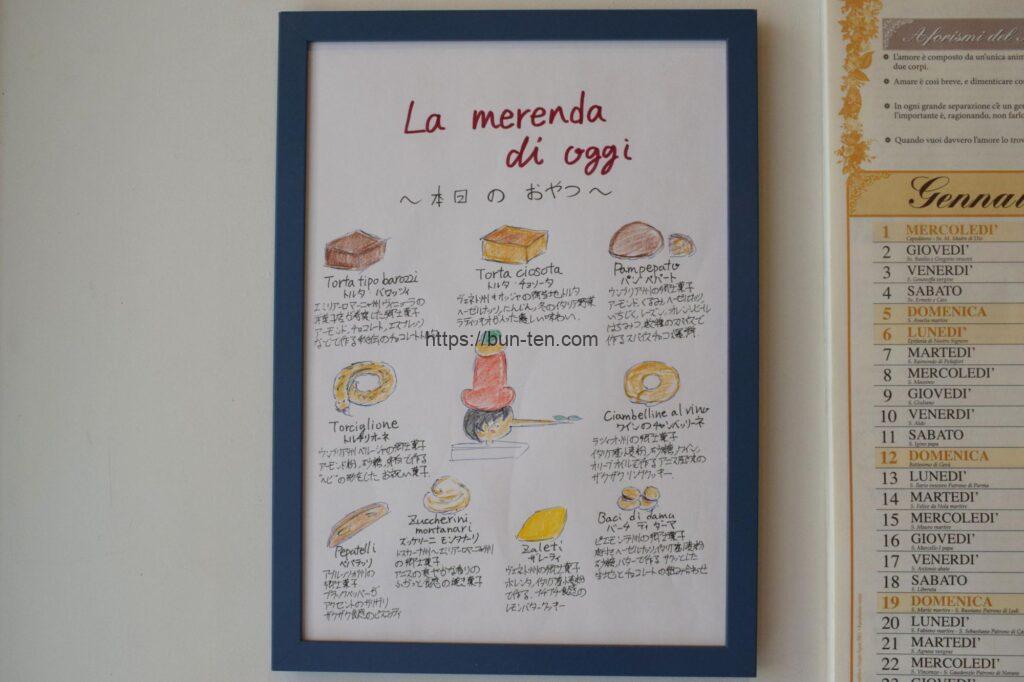 La merenda
di oggi
～本日のおやつ～
Torta tipo barozzi
トルタ バロッツィ
エミリア・ロマーニャ州ヴィニョーラの
洋菓子店が考案した郷土菓子
アーモンド、チョコレート、エスプレッソ
などで作る
Torta ciosota
トルタ・チョゾータ
ヴェネト州キオッジャのご当地トルタ
ヘーゼルナッツ、にんじん、冬のイタリア野菜
ラディッキオが入った優しい味わい。
Pampepato
パンペパート
ウンブリア州の郷土菓子
アーモンド、くるみ、ヘーゼルナッツ、
いちじく、レーズン、オレンジピール
はちみつ、数種のスパイスで
作るスパイスチョコ
https://bun-ten.com
Torciglione
トルチリオーネ
ウンブリア州ペルージャの郷土菓子
アーモンド粉、砂糖、卵白で作る
"ヘビ"の形をした お祝い菓子
Ciambelline al vino
ワインのチャンベッリーネ
ラツィオ州の郷土菓子
イタリア産小麦粉、砂糖、ワイン、
オリーブオイルで作るアニス風味の
ザクザク リングクッキー
Pepatelli
ペパテッリ
アブルッツォ州の
郷土菓子
ブラックペッパーが
アクセントの
ザクザク食感のビスコッティ
Zuccherini
montanari
ズッケリーニ モンタナーリ
トスカーナ州〜エミリア・ロマーニャ州
の郷土菓子
アニスの爽やかな香りの
食感の焼き菓子
Zaleti
ザレーティ
ヴェネト州の郷土菓子
ポレンタ、イタリア産小麦粉
で作る、プチプチ食感の
レモンバタークッキー
Baci di dama
バーチ ディ ダーマ
ピエモンテ州の郷土菓子
ヘーゼルナッツ、イタリア産小麦粉
砂糖、バターで作る サクッとした
生地とチョコレートの組み合わせ
Aforismi del
L'amore è composto da un'unica anim
due corpi.
Amare è così breve, e dimenticare co
In ogni grande separazione c'è un ge
l'importante è, ragionando, non farlo
Quando vuoi davvero l'amore lo trov
Gennai
1 MERCOLEDI'
2 GIOVEDI'
3 VENERDI'
4 SABATO
5 DOMENICA
6 LUNEDI'
7 MARTEDI'
8 MERCOLEDI'
9 GIOVEDI'
10 VENERDI'
11 SABATO
12 DOMENICA
13 LUNEDI'
14 MARTEDI'
15 MERCOLEDI'
16 GIOVEDI'
17 VENERDI'
18 SABATO
19 DOMENICA
20 LUNEDI'
21 MARTEDI'
22 MERCOLEDI'
23 GIOVEDI'